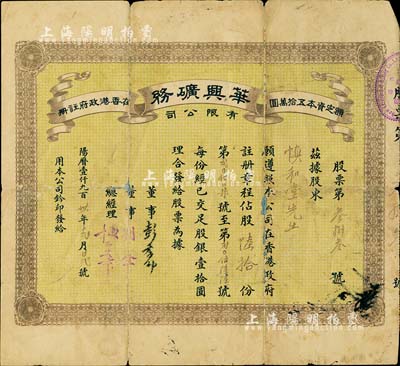 上海陽明拍賣
華興礦務
有限公司
額定資本五拾萬圓
在香港政府註冊
股票第 號
茲據股東 先生
願遵照本公司在香港政府
註冊章程佔股 陸拾 份
第 號至第 號
每份經已交足股銀壹拾圓
理合發給股票為據
董事
董事
總經理
陽曆壹仟九百 年 月 號
用本公司鈐印發給
上海陽明拍賣
上海陽明拍賣